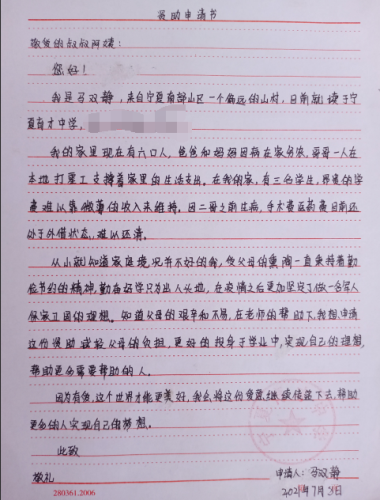 资助申请书
敬爱的叔叔阿姨:
您好!
我是马双静,来自宁夏南部山区一个偏远的山村,目前就读于宁
夏育才中学,
我的家里现在有六口人,爸爸和妈妈因病在家务农,哥哥一人在
本地打零工支撑着家里的生活支出。在我的家,有三名学生,昂贵的学
费难以靠微薄的收入来维持。因二哥之前生病,手术费医药费目前还
处于外借状态,难以还清。
从小就知道家庭境况并不好的我,受父母的熏陶一直秉持着勤
俭节约的精神,勤奋好学只为出人头地,在疫情之后更加坚定了做一名军人
保家卫国的理想。知道父母的艰辛和不易,在老师的帮助下,我想申请
这份资助减轻父母的负担,更好的投身于学业中,实现自己的理想,
帮助更多需要帮助的人。
因为有您,这个世界才能更美好,我会将这份爱意继续传递下去,帮助
更多的人实现自己的梦想。
此致
敬礼
申请人:马双静
280361.2006
2021年7月